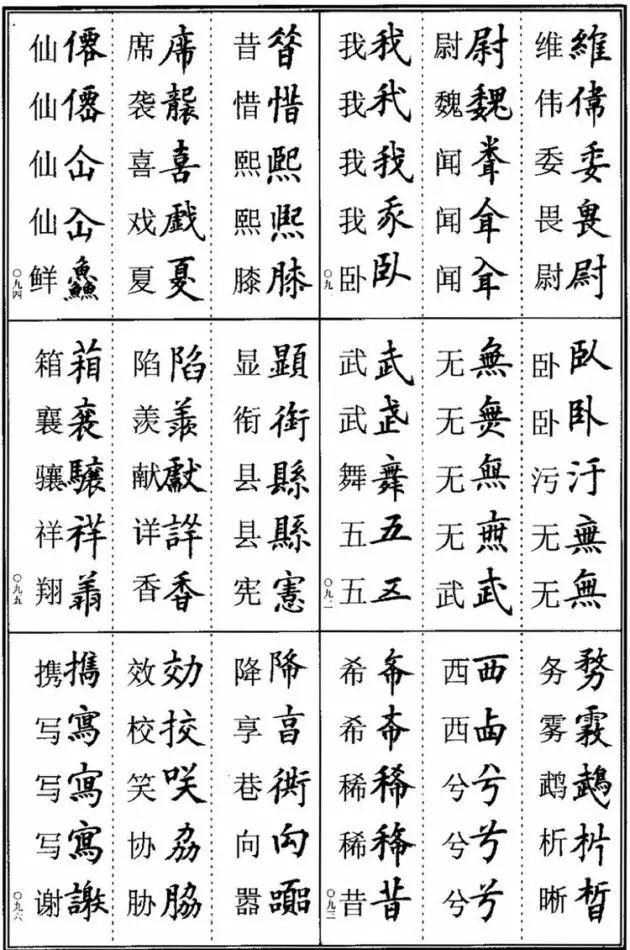 维 維
伟 偉
委 委
畏 畏
尉 尉
尉 尉
魏 魏
闻
闻
闻
我 我
我 我
我 我
我
卧 臥
〇九一
卧 臥
卧 卧
污 汙
无 無
无 無
无 無
无 無
无 無
无 無
武 武
武 武
武
舞 舞
五 五
五 五
〇九二
务 務
雾 霧
鹉 鵡
析 析
晰 晳
西 西
西 卤
兮 兮
兮 兮
兮 兮
希 希
希 希
稀 稀
稀 稀
昔 昔
〇九三
昔
惜 惜
熙 熙
熙 熙
膝 膝
席 席
袭 襲
喜 喜
戏 戲
夏 夏
仙 僊
仙 僊
仙 仚
仙 仚
鲜 鱻
〇九四
显 顯
衔 銜
县 縣
县 縣
宪 憲
陷 陷
羡 羡
献 獻
详 詳
香 香
箱 箱
襄 襄
骧 驤
祥 祥
翔
〇九五
降 降
享 亯
巷 衖
向 向
嚣 嚣
效 効
校 挍
笑 咲
协 劦
胁 脇
携 攜
写 寫
写 寫
写 寫
谢 謝
〇九六